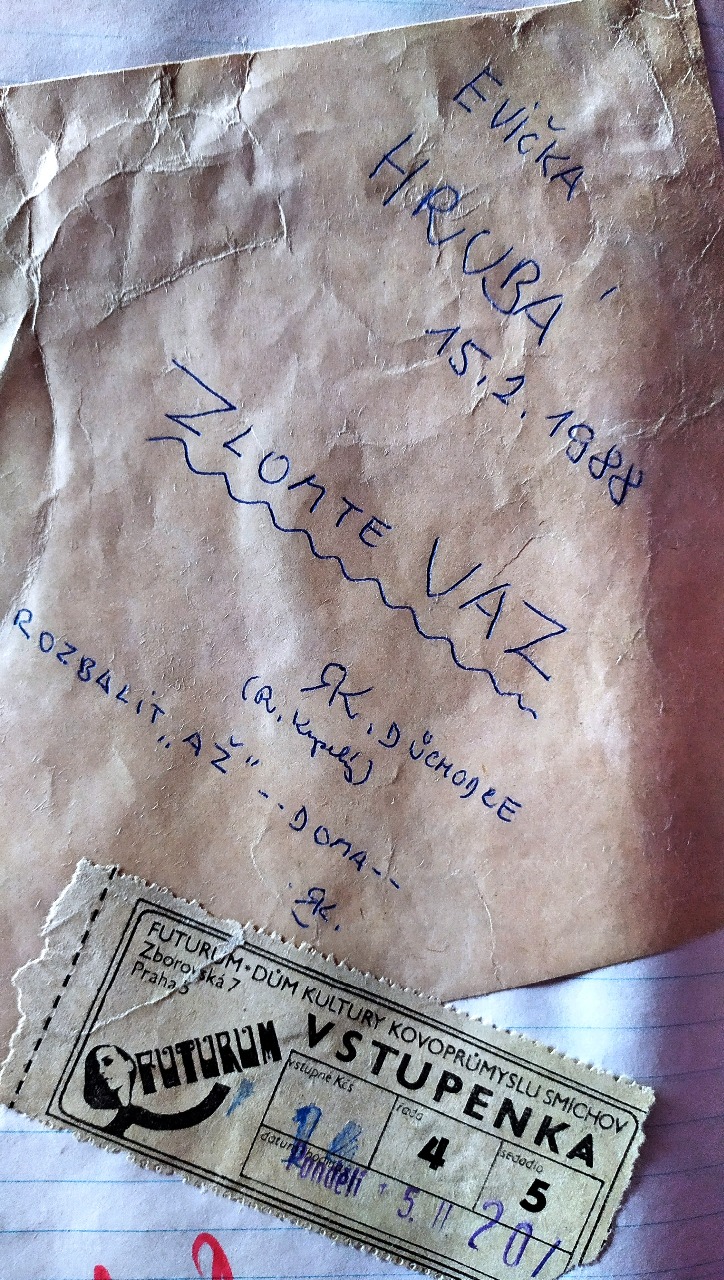 EVIČKA
HRUBÁ
15.2.1988
ZLOMTE VAZ
RK, DŮCHODCE
(R. )
ROZBALIT „AŽ" -- DOMA --
RK.
FUTURUM • DŮM KULTURY KOVOPRŮMYSLU SMÍCHOV
Zborovská 7
Praha 5
FUTURUM
VSTUPENKA
vstupné Kčs
řada
4
sedadlo
5
datum
Pondělí 15. II 20/